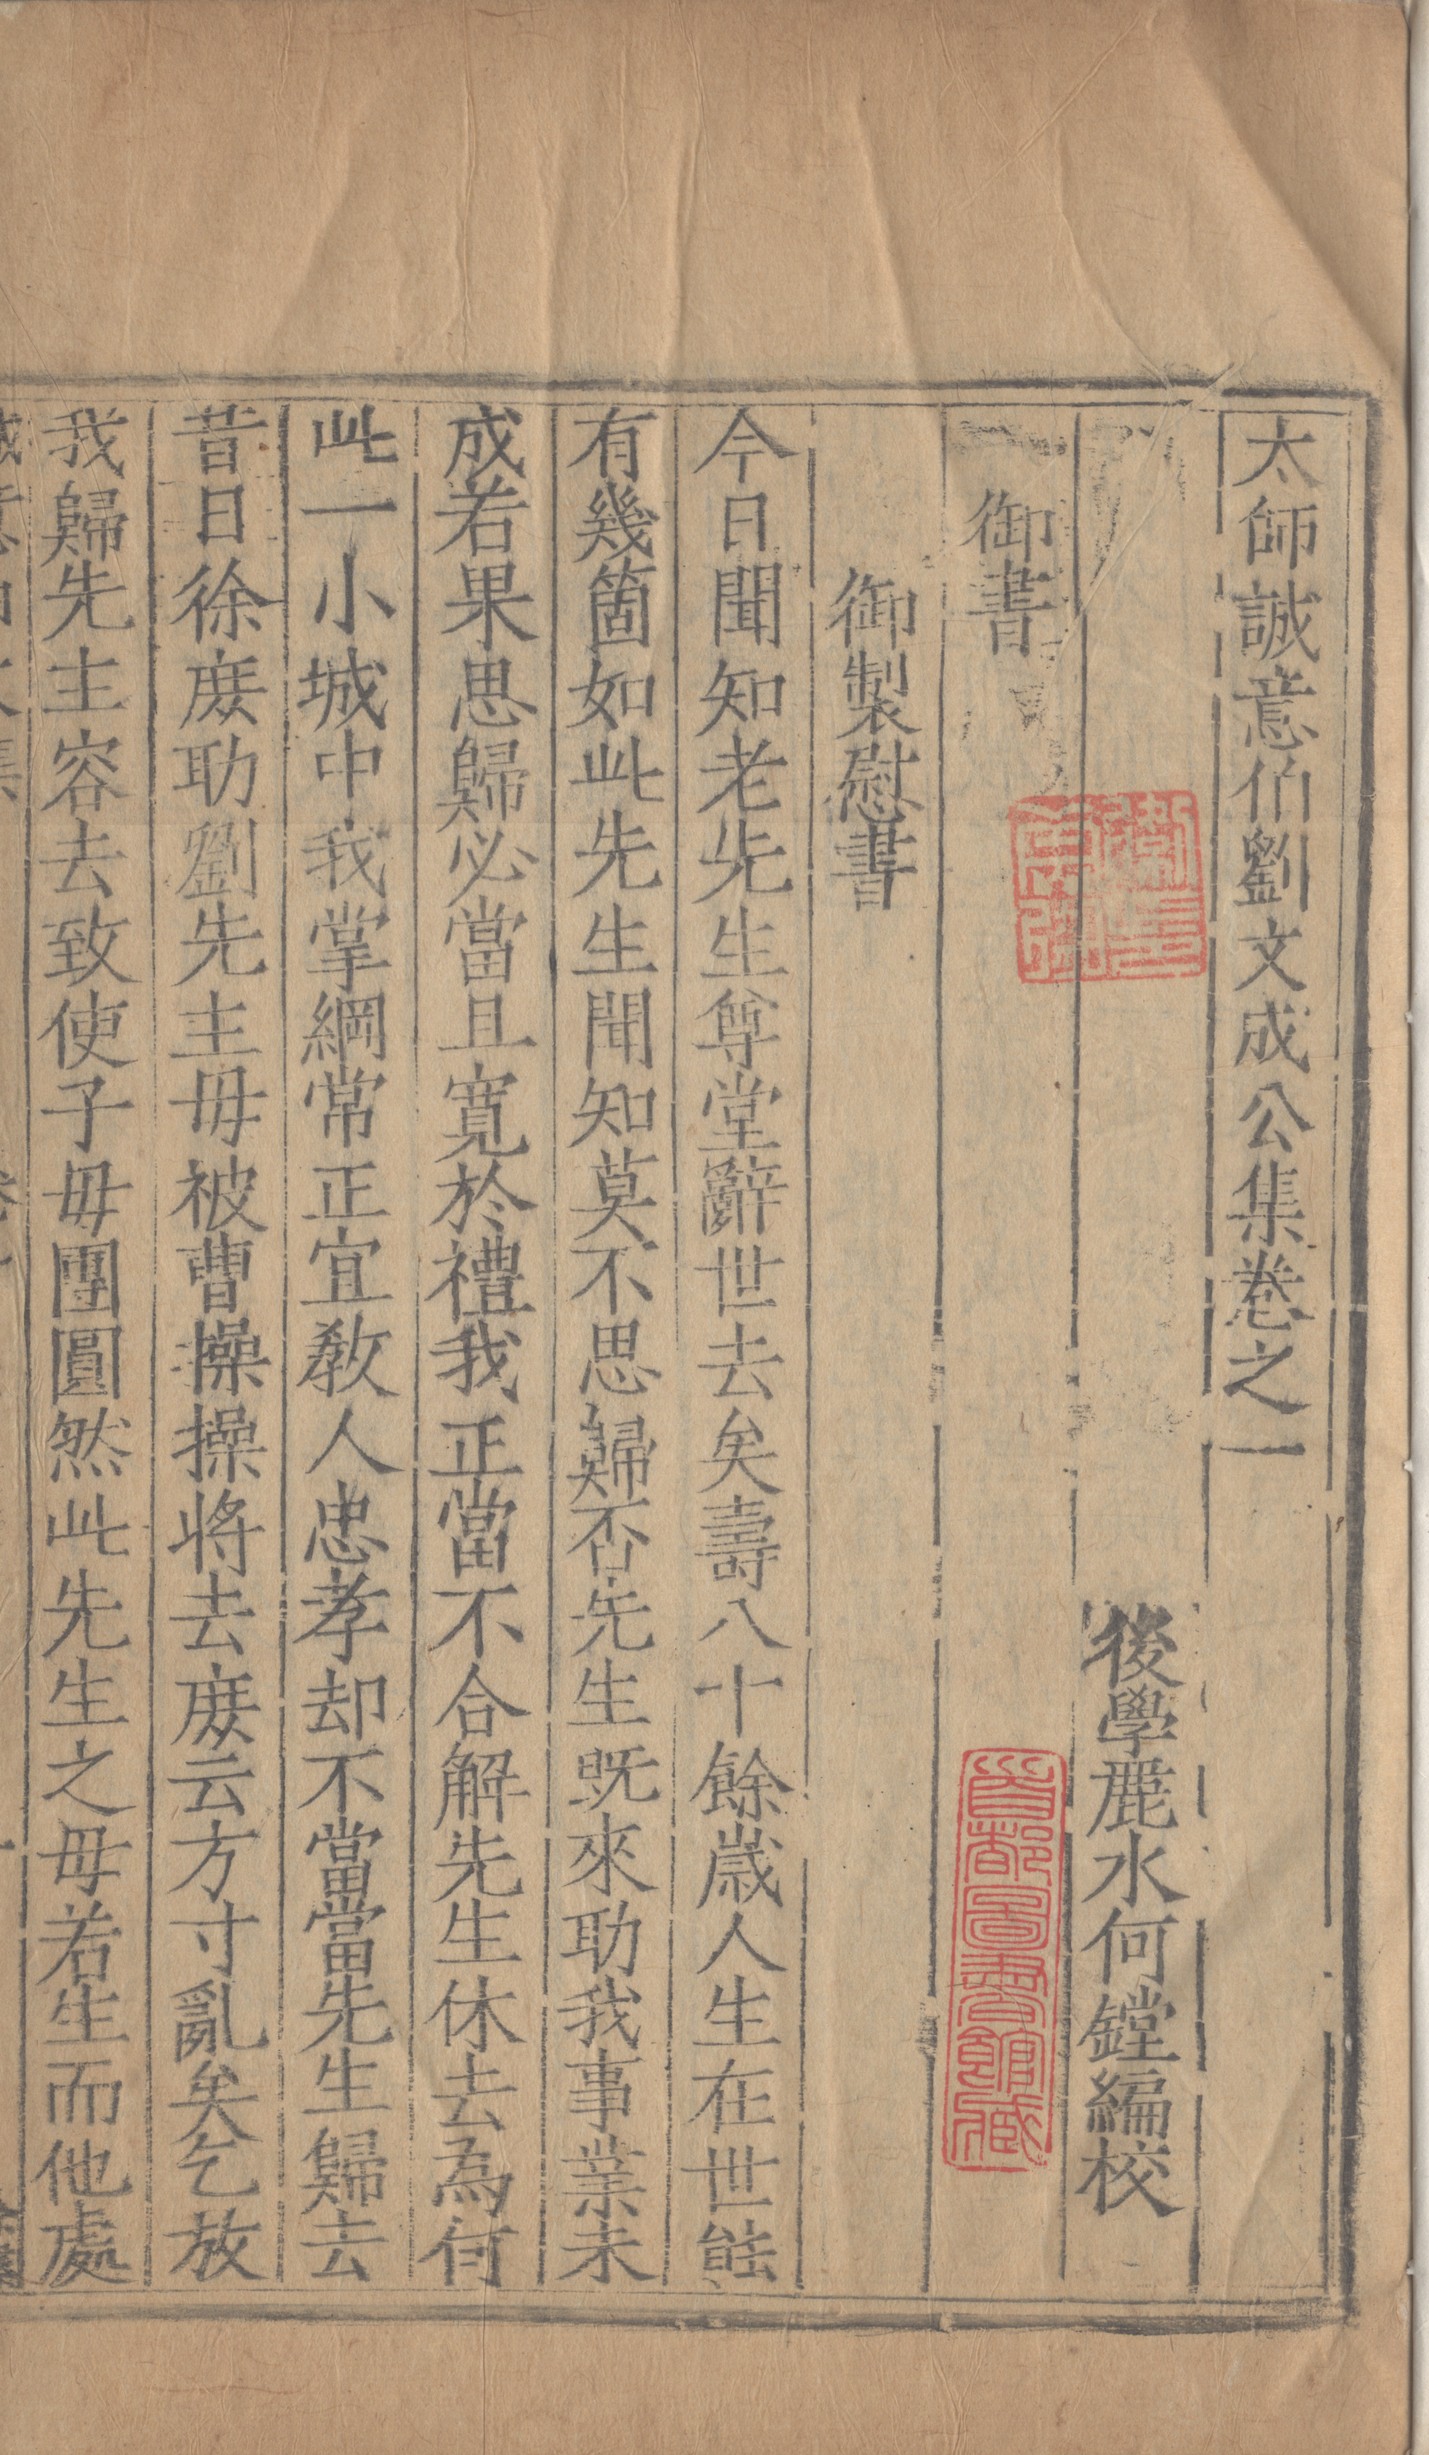 太師誠意伯劉文成公集卷之一
後學麗水何鏜編校
御書
御製慰書
今日聞知老先生尊堂辭世去矣壽八十餘歲人生在世能
有幾箇如此先生聞知莫不思歸否先生既來助我事業未
成若果思歸必當且寬於禮我正當不合解先生休去為何
此一小城中我掌綱常正宜教人忠孝却不當當先生歸去
昔日徐庶助劉先主母被曹操操將去庶云方寸亂矣乞放
我歸先主容去致使子母團圓然此先生之母若生而他處
首都圖書館藏